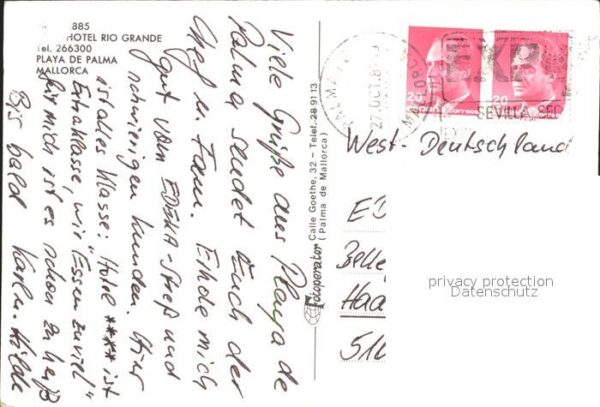 885
HOTEL RIO GRANDE
Tel. 266300
PLAYA DE PALMA
MALLORCA
Viele Grüße aus Playa de
Palma sendet Euch der
Chef u. Fam. Erhole mich
gut vom EDEKA-Streß und
schwierigen Kunden. Hier
ist alles Klasse: Hotel **** ist
Extraklasse, wir "Essen zuviel"
für mich ist es schon zu heiß
Bis bald Karlh. Hilde
Fotoperator Calle Goethe, 32 - Telef. 28 91 13
(Palma de Mallorca)
PALMA
27.OCT.8
EXP
SEVILLA
20
ESPAÑA Correos
20
Correos
West-Deutschland
ED
Belle
Haa
51
privacy protection
Datenschutz